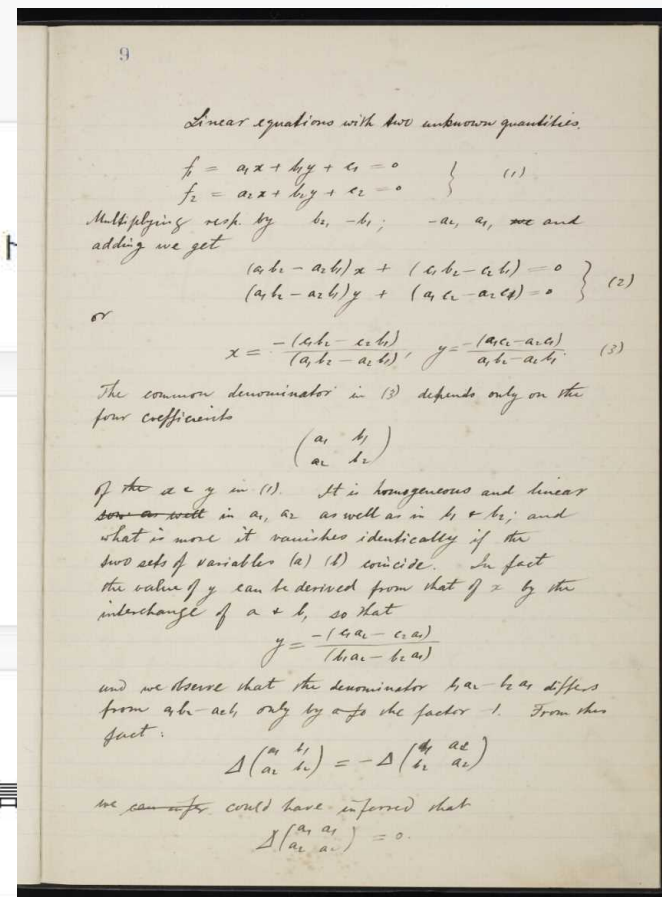 9
Linear equations with two unknown quantities.
f₁ = a₁x + b₁y + c₁ = 0
f₂ = a₂x + b₂y + c₂ = 0 } (1)
Multiplying resp. by b₂, -b₁; -a₂, a₁, and
adding we get
(a₁b₂ - a₂b₁)x + (c₁b₂ - c₂b₁) = 0
(a₁b₂ - a₂b₁)y + (a₁c₂ - a₂c₁) = 0 } (2)
or
x = -(c₁b₂ - c₂b₁)/(a₁b₂ - a₂b₁), y = -(a₁c₂ - a₂c₁)/a₁b₂ - a₂b₁. (3)
The common denominator in (3) depends only on the
four coefficients
(a₁ b₁
a₂ b₂)
of the x & y in (1). It is homogeneous and linear
in a₁, a₂ as well as in b₁ & b₂; and
what is more it vanishes identically if the
two sets of variables (a) (b) coincide. In fact
the value of y can be derived from that of x by the
interchange of a & b, so that
y = -(c₁a₂ - c₂a₁)/(b₁a₂ - b₂a₁)
and we observe that the denominator b₁a₂ - b₂a₁ differs
from a₁b₂ - a₂b₁ only by the factor -1. From this
fact:
Δ(a₁ b₁
a₂ b₂) = -Δ(b₁ a₁
b₂ a₂)
we could have inferred that
Δ(a₁ a₁
a₂ a₂) = 0.